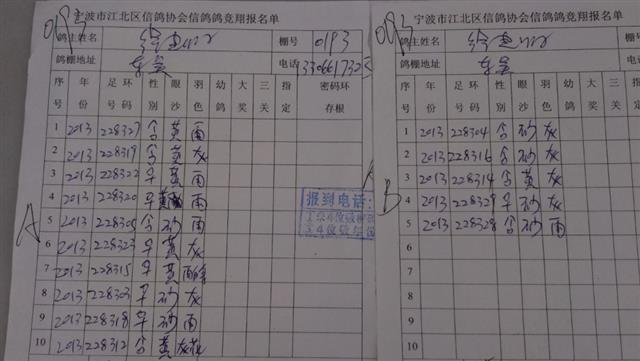 0193
宁波市江北区信鸽协会信鸽鸽竞翔报名单
鸽主姓名 棚号 0193
鸽棚地址 电话 13306617325
序号 年份 足环号码 性别 眼沙 羽色 幼鸽 大奖 三关 指定 密码环存根
1 2013 228327 合 黄 雨
2 2013 228319 合 黄 灰
3 2013 228322 平 黄 雨
4 2013 228320 平 黄 雨
5 2013 228305 合 砂 雨
6 2013 228323 平 黄 灰
7 2013 228315 平 黄
8 2013 228303 平 砂 灰
9 2013 228318 平 砂 雨
10 2013 228312 合 黄 灰
A
报到电话:
宁波市江北区信鸽协会信鸽鸽竞翔报名单
鸽主姓名
鸽棚地址
序号 年份 足环号码 性别 眼沙 羽色 幼鸽 大奖 三关 指定
1 2013 228304 合 砂 灰
2 2013 228316 合 砂 灰
3 2013 228314 合 黄 灰
4 2013 228329 平 砂 灰
5 2013 228328 合 砂 雨
6
7
8
9
10
B